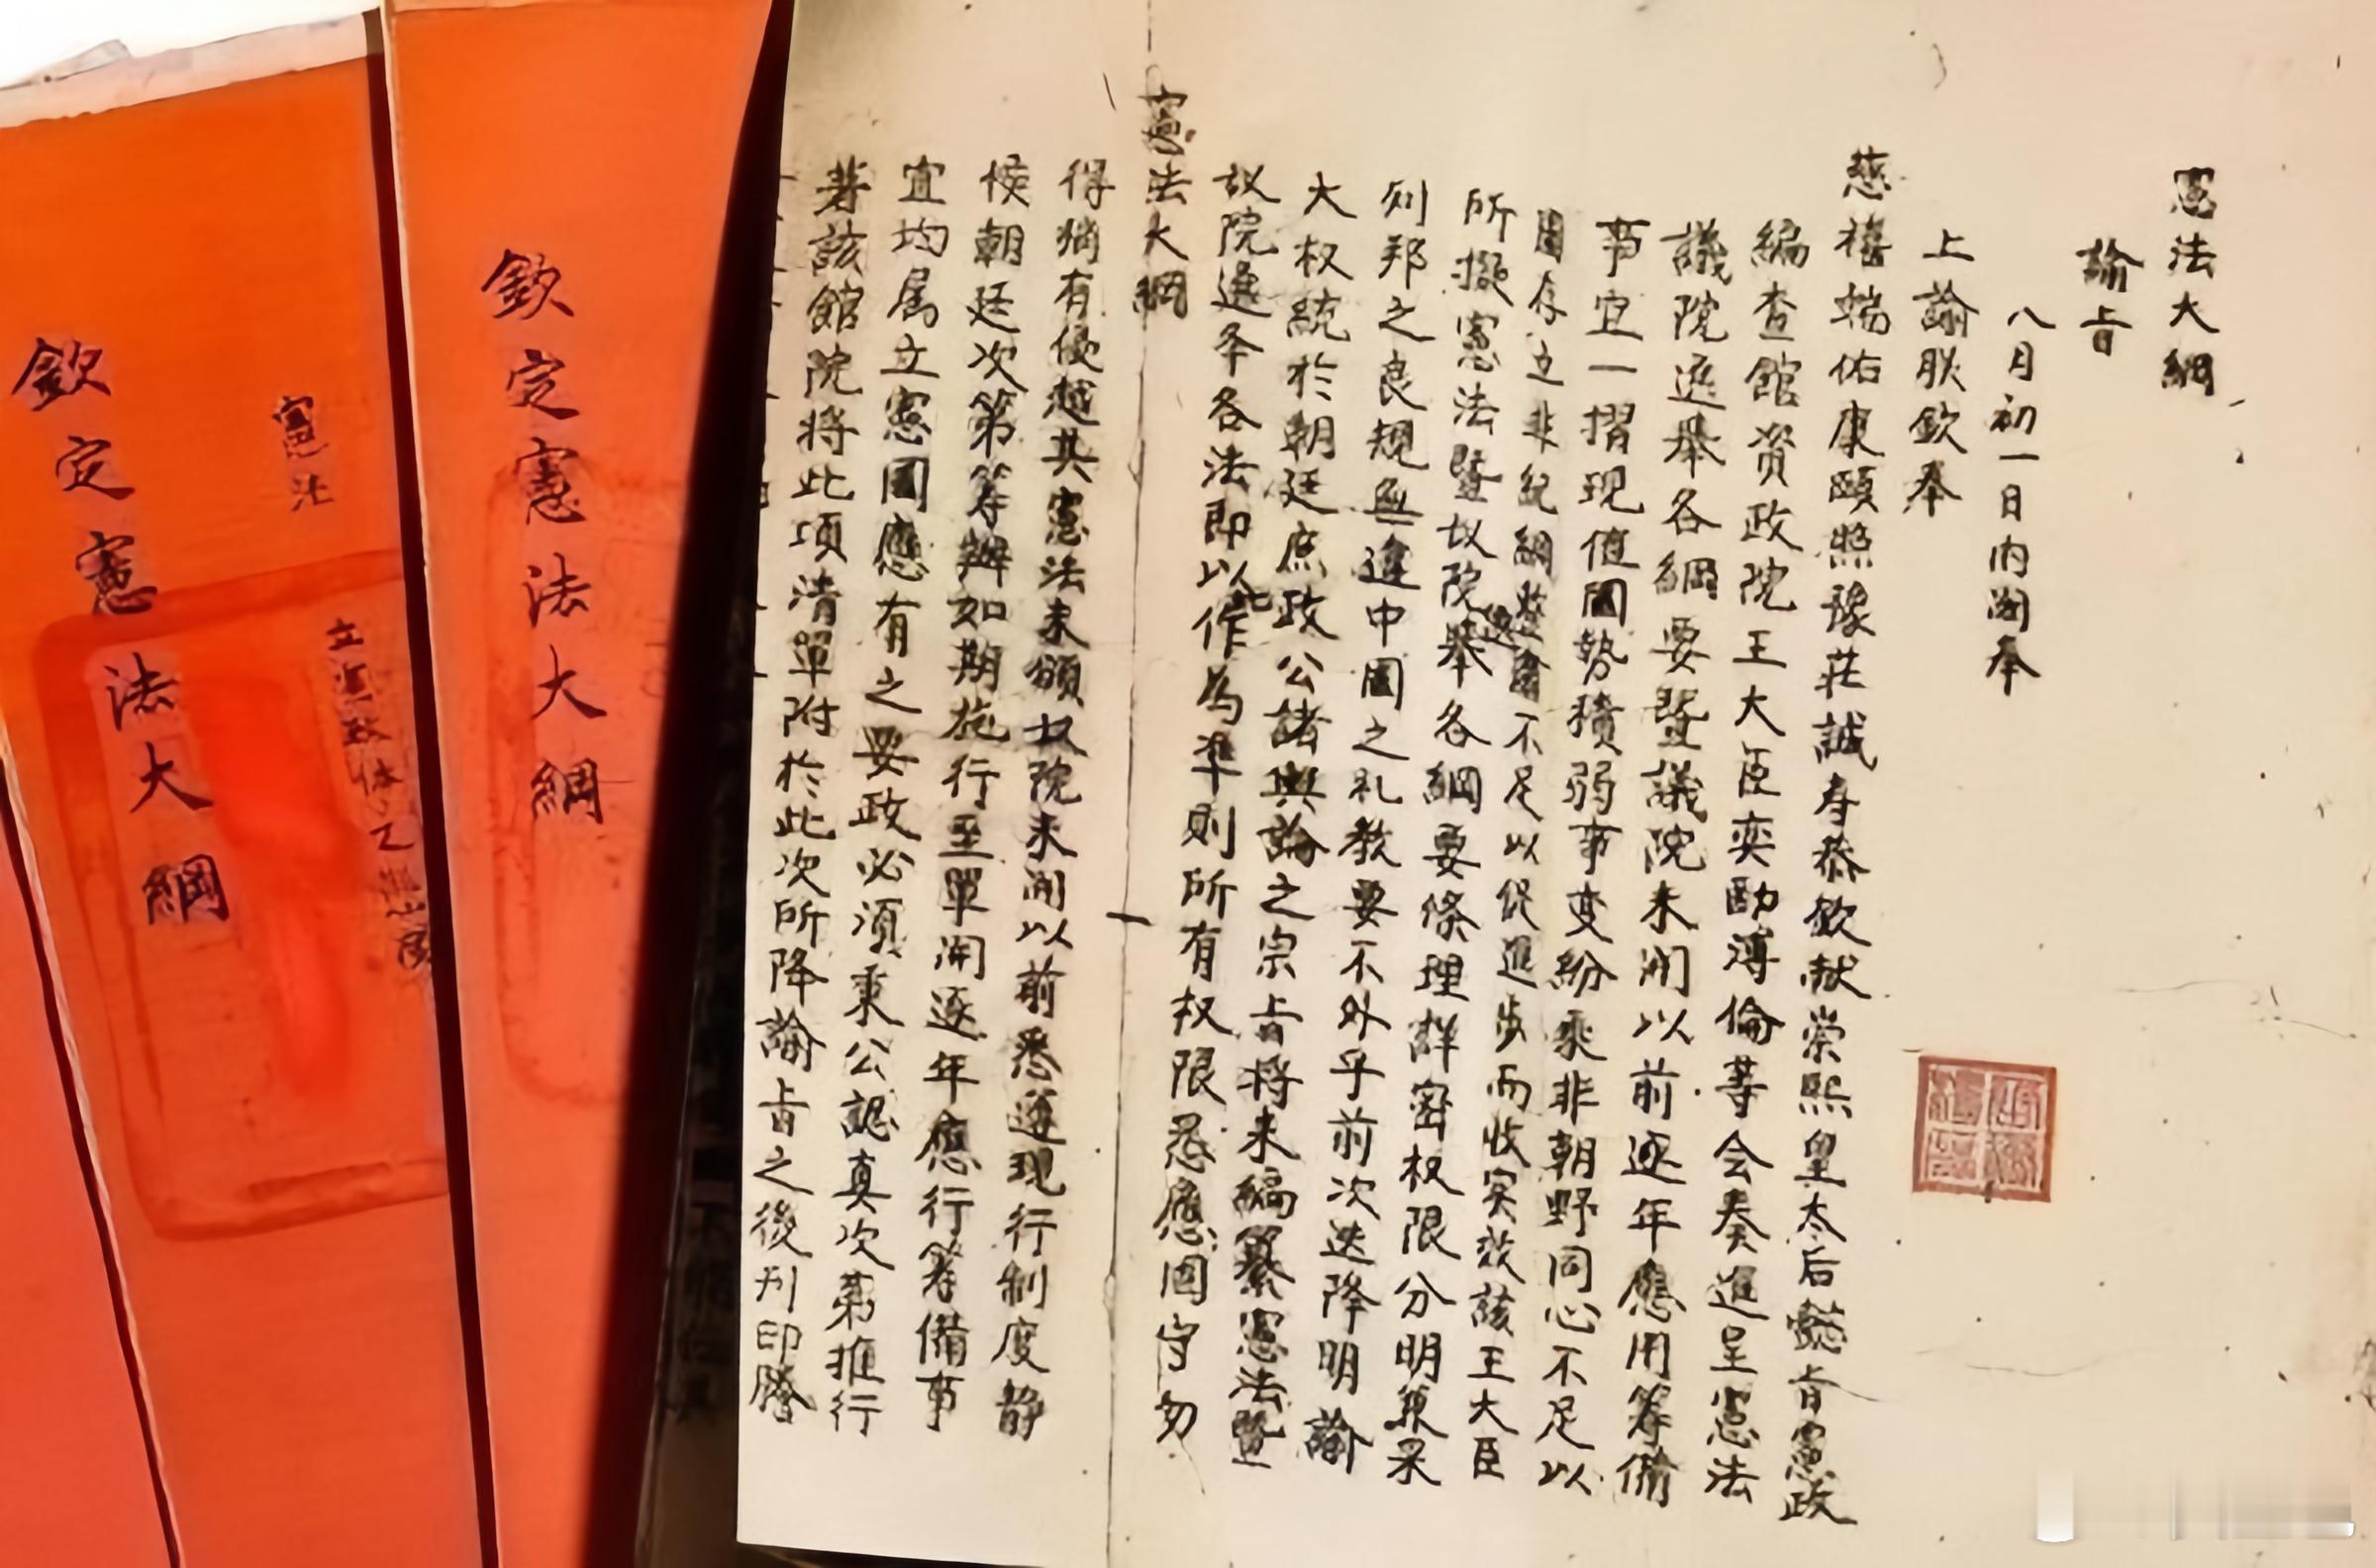 憲法大綱
諭旨
八月初一日内閣奉
上諭朕欽奉
慈禧端佑康頤照豫莊誠寿恭欽献崇熙皇太后懿旨憲政
編查館資政院王大臣奕劻溥倫等会奏進呈憲法
議院選舉各綱要暨議院未開以前逐年應用筹備
事宜一摺現值國勢積弱事变紛乘非朝野同心不足以
圖存立非紀綱整齊不足以促進步而收实效該王大臣
所擬憲法暨议院選舉各綱要條理詳密权限分明兼采
列邦之良規無違中國之礼教要不外乎前次迭降明諭
大权統於朝廷庶政公諸輿論之宗旨将来編纂憲法暨
议院選举各法即以此作為準則所有权限悉應固守勿
憲法大綱
一
得稍有侵越其憲法未頒议院未開以前悉遵現行制度静
候朝廷次第筹辦如期施行至單開逐年應行筹備事
宜均属立憲國應有之要政必須秉公認真次第推行
著該館院将此項清單附於此次所降諭旨之後刋印謄
欽定憲法大綱
憲法
欽定憲法大綱